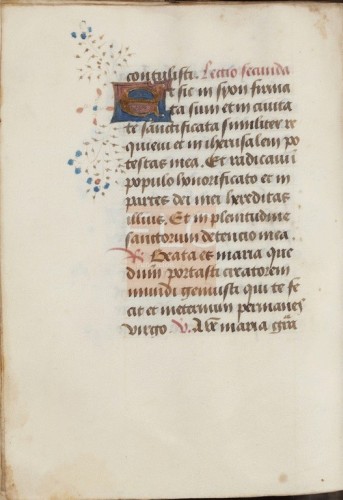 contulisti. Lectio secunda
Et sic in syon firma
ta sum et in civita
te sanctificata similiter re
quievi et in iherusalem po
testas mea. Et radicavi i
populo honorificato et in
partes dei mei hereditas
illius. Et in plenitudine
sanctorum detencio mea.
R. Beata es maria que
dnm portasti creatorem
mundi genuisti qui te fe
cit et ineternum permanes
virgo. V. Ave maria gra